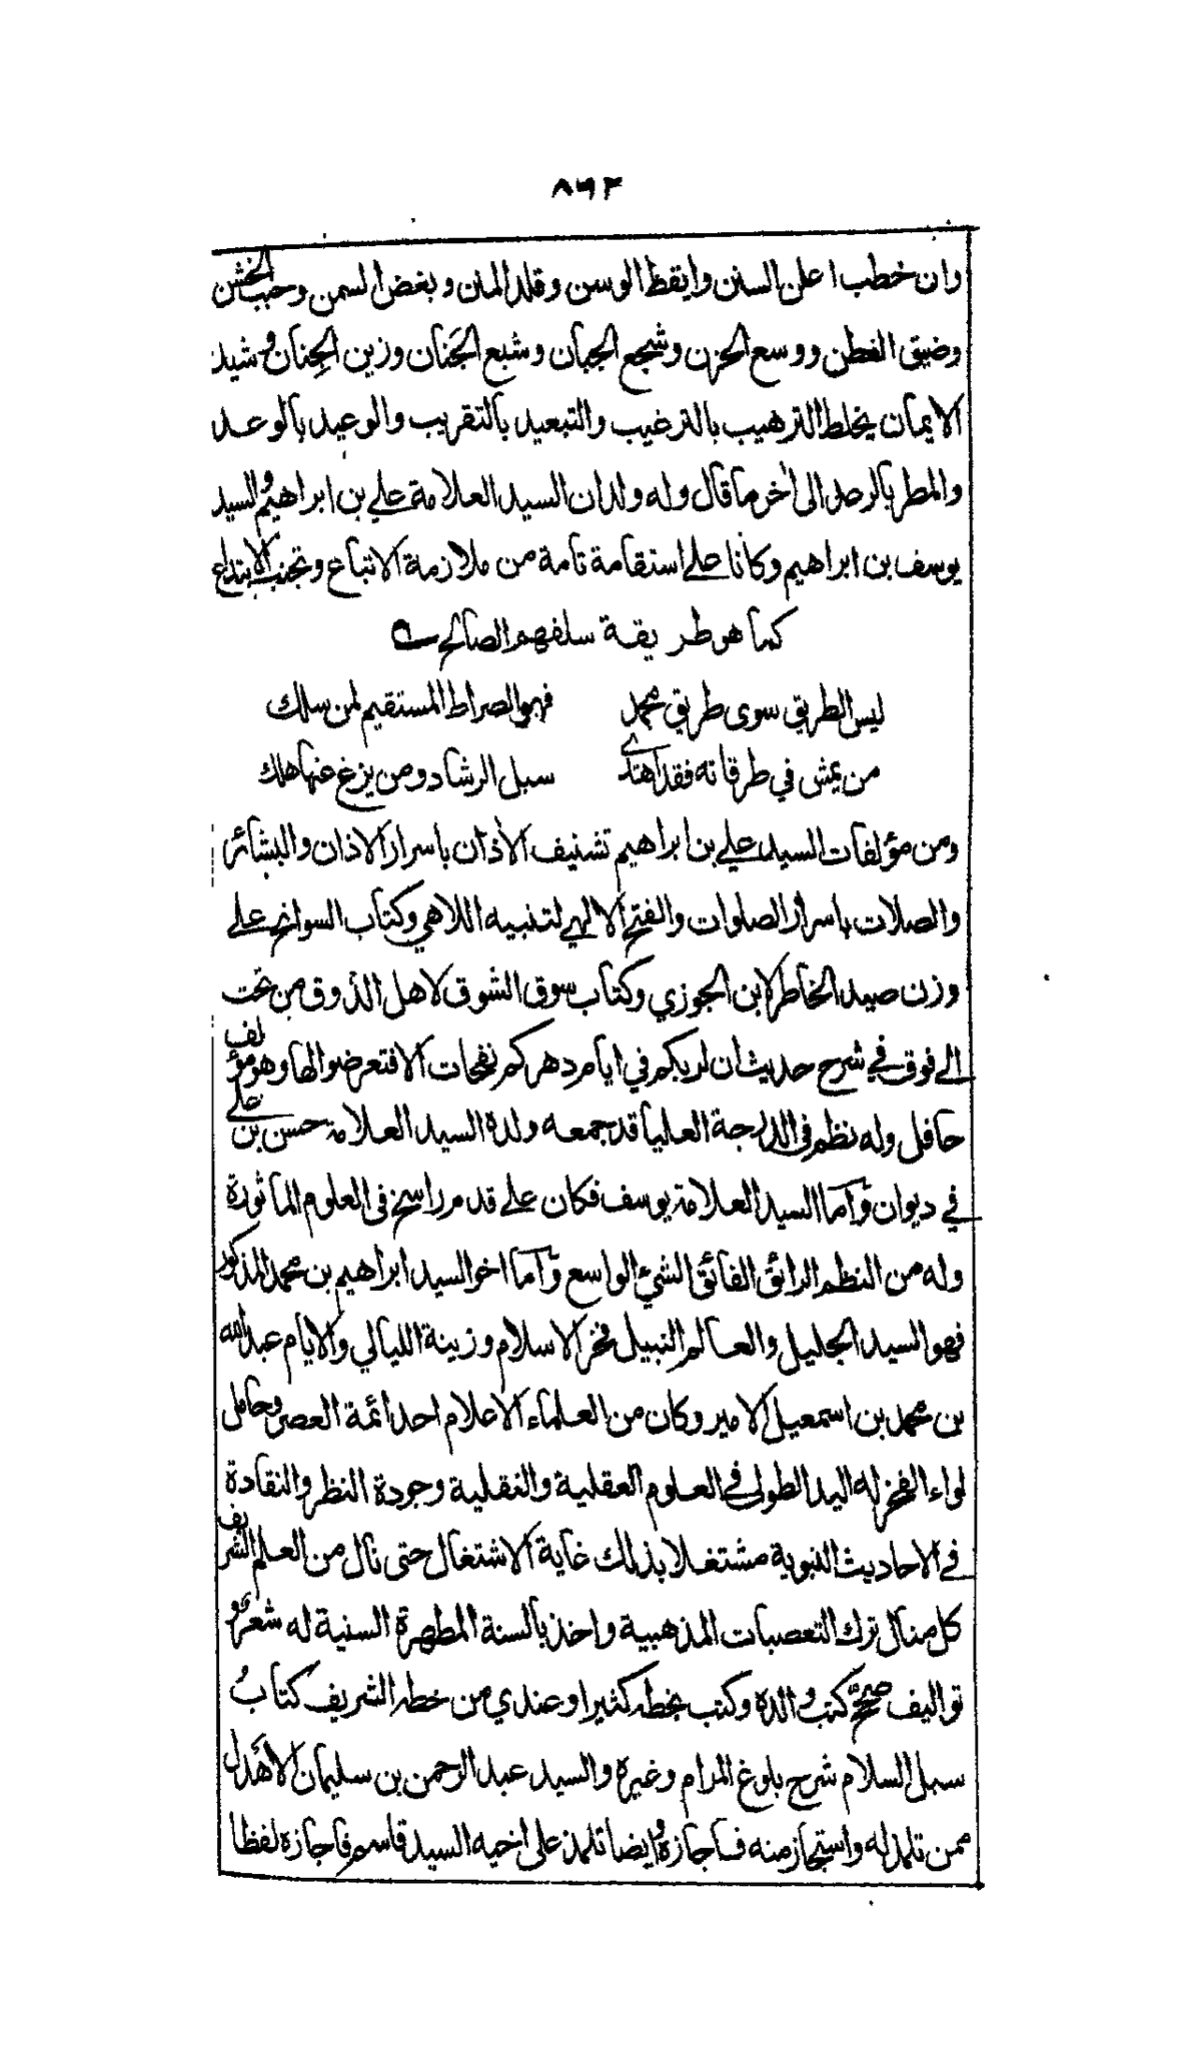 ٨٦٢
وان خطب اعلن السنن وايقظ الوسن وقلد المنن وبغض السمن وحبب الخشن
وضيق الفطن ووسع الحزن وشجع الجبان وشبع الجَنان وزين الجِنان وشيد
الايمان يخلط الترهيب بالترغيب والتبعيد بالتقريب والوعيد بالوعد
والمطر بالرعد الى اٰخر ما قال وله ولدان السيد العلامة علي بن ابراهيم والسيد
يوسف بن ابراهيم وكانا على استقامة تامة من ملازمة الاتباع وتجنب الابتداع
كما هو طريقة سلفهم الصالح
ليس الطريق سوى طريق محمد فهو الصراط المستقيم لمن سلك
من يمش في طرقاته فقد اهتدى سبل الرشاد ومن يزغ عنها هلك
ومن مؤلفات السيد علي بن ابراهيم تشنيف الاٰذان باسرار الاذان والبشائر
والصلات باسرار الصلوات والفتح الالهي لتنبيه اللاهي وكتاب السوانح على
وزن صيد الخاطر لابن الجوزي وكتاب سوق الشوق لاهل الذوق من تحت
الى فوق في شرح حديث ان لربكم في ايام دهركم نفحات الا فتعرضوا لها وهو مؤلف
حافل وله نظم في الدرجة العليا قد جمعه ولده السيد العلامة حسن بن علي
في ديوان واما السيد العلامة يوسف فكان على قدم راسخ في العلوم الماثورة
وله من النظم الرائق الفائق الشيء الواسع واما اخو السيد ابراهيم بن محمد المذكور
فهو السيد الجليل والعالم النبيل فخر الاسلام وزينة الليالي والايام عبد الله
بن محمد بن اسمعيل الامير وكان من العلماء الاعلام احد ائمة العصر وحامل
لواء الفخر له اليد الطولى في العلوم العقلية والنقلية وجودة النظر والنقادة
في الاحاديث النبوية مشتغلا بذلك غاية الاشتغال حتى نال من العلم الشريف
كل منال ترك التعصبات المذهبية واخذ بالسنة المطهرة السنية له شعر و
تواليف صحح كتب والده وكتب بخطه كثيرا وعندي من خطه الشريف كتابُ
سبل السلام شرح بلوغ المرام وغيره والسيد عبد الرحمن بن سليمان الاهدل
ممن تلمذ له واستجاز منه فاجازه وايضا تلمذ على اخيه السيد قاسم فاجازه لفظا